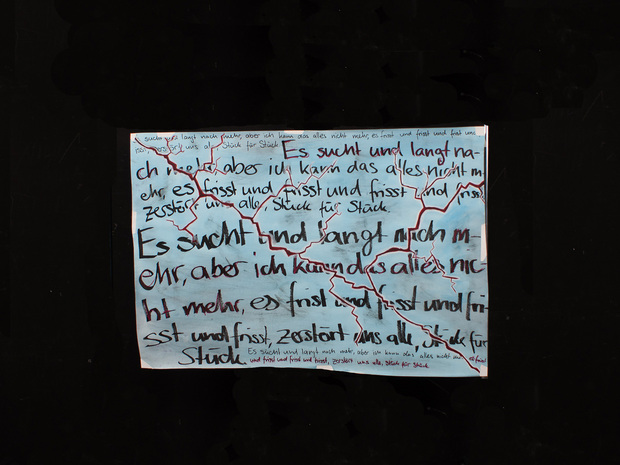 sucht und langt nach mehr, aber ich kann das alles nicht mehr, es frisst und frisst und frisst und
zerstört uns alle Stück für Stück
Es sucht und langt na-
ch mehr, aber ich kann das alles nicht m-
ehr, es frisst und frisst und frisst und frisst
zerstört uns alle, Stück für Stück.
Es sucht und langt nach m-
ehr, aber ich kann das alles nic-
ht mehr, es frisst und frisst und fri-
sst und frisst, zerstört uns alle, Stück für
Stück
Es sucht und langt nach mehr, aber ich kann das alles nicht
und frisst und frisst und frisst, zerstört uns alle, Stück für Stück